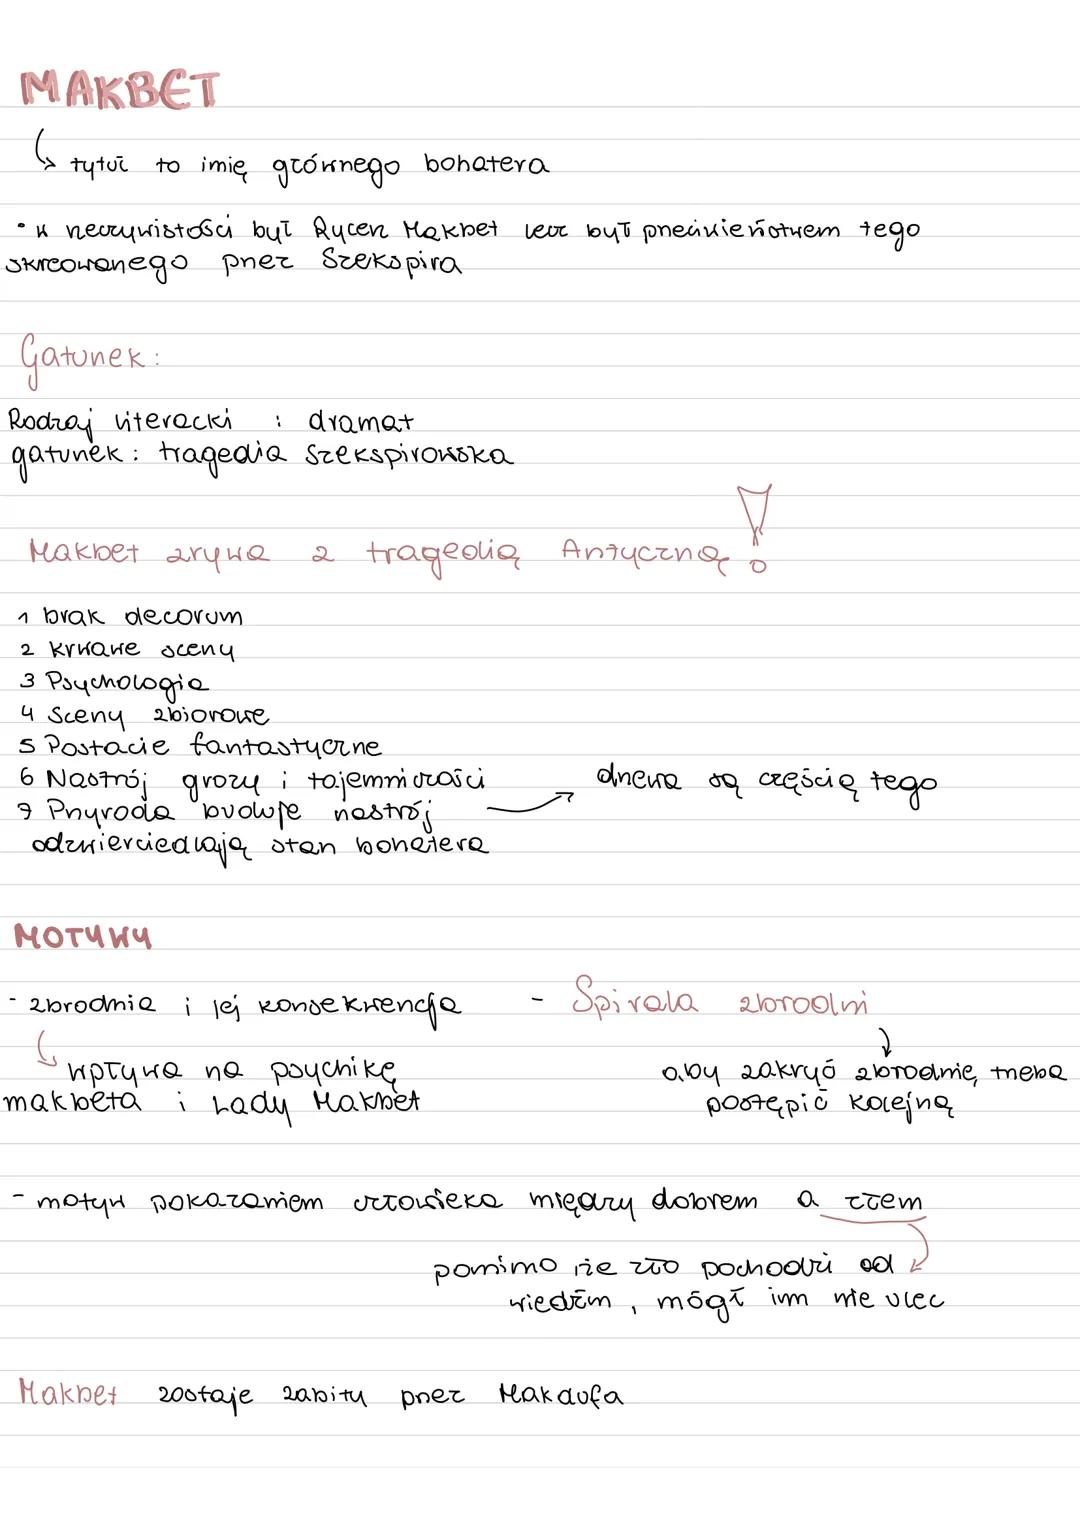 MAKBET
tytuł to imię głównego bohatera
• w rzeczywistości był Rycerz Makbet lecz był przeciwieństwem tego
skreowanego przez Szekspira
Gatunek:
Rodzaj literacki : dramat
gatunek: tragedia Szekspirowska
Makbet zrywa z tragedią Antyczną!
1 brak decorum
2 krwawe sceny
3 Psychologia
4 Sceny zbiorowe
5 Postacie fantastyczne
6 Nastrój grozy i tajemniczości
7 Przyroda buduje nastrój → drzewa są częścią tego
odzwierciedlają stan bohatera
MOTYWY
- zbrodnia i jej konsekwencja - Spirala zbrodni
wpływa na psychikę aby zakryć zbrodnię, trzeba
makbeta i Lady Makbet postępić kolejną
- motyw pokazaniem człowieka między dobrem a złem
pomimo że zło pochodzi od
wiedźm, mógł im nie ulec
Makbet zostaje zabity przez Makdufa